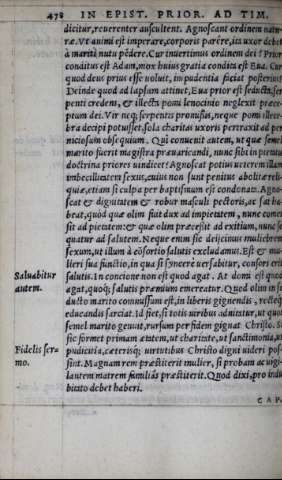 478 IN EPIST. PRIOR. AD TIM.
dicitur, reuerenter auscultent. Agnoscant ordinem natu-
ræ. Vt animi est imperare, corporis parére, ita uxor debet
à mariti nutu pēdere. Cur inuertimus ordinem dei? Prior
conditus est Adam, mox huius gratia condita est Eua. Cur
quod deus prius esse uoluit, impudentia faciat posterius?
Deinde quod ad lapsum attinet, Eua prior est seducta, ser-
penti credens, & illecta pomi lenocinio neglexit præce-
ptum dei. Vir neq; serpentis promissis, neque pomi illece-
bra decipi potuisset, sola charitas uxoris pertraxit ad per-
niciosum obsequium. Qui conuenit autem, ut quæ semel
marito fuerit magistra præuaricandi, nunc sibi in pietatis
doctrina priores uindicet? Agnoscat potius ueterem illam
imbecillitatem sexus, cuius non sunt penitus abolitæ reli-
quiæ, etiam si culpa per baptismum est condonata. Agno-
scat & dignitatem & robur masculi pectoris, ac sat ha-
beat, quòd quæ olim fuit dux ad impietatem, nunc comes
sit ad pietatem: & quæ olim præcessit ad exitium, nunc se-
quatur ad salutem. Neque enim sic deijcimus muliebrem
sexum, ut illum à cōsortio salutis excludamus. Est & mu-
lieri sua functio, in qua si syncere uersabitur, consors erit
Saluabitur autem.
salutis. In concione non est quod agat. At domi est quod
agat, quoq; salutis præmium emereatur. Quod olim in se-
ducto marito commissum est, in liberis gignendis, recteq;
educandis sarciat. Id fiet, si totis uiribus adnitatur, ut quos
semel marito genuit, rursum per fidem gignat Christo. Si
sic formet primam ætatem, ut charitate, ut sanctimonia, ut
Fidelis sermo.
pudicitia, cæterisq; uirtutibus Christo digni uideri pos-
sint. Magnam rem præstiterit mulier, si probam ac uigi-
lantem matrem familiâs præstiterit. Quod dixi, pro indu
bitato debet haberi.
CAP.